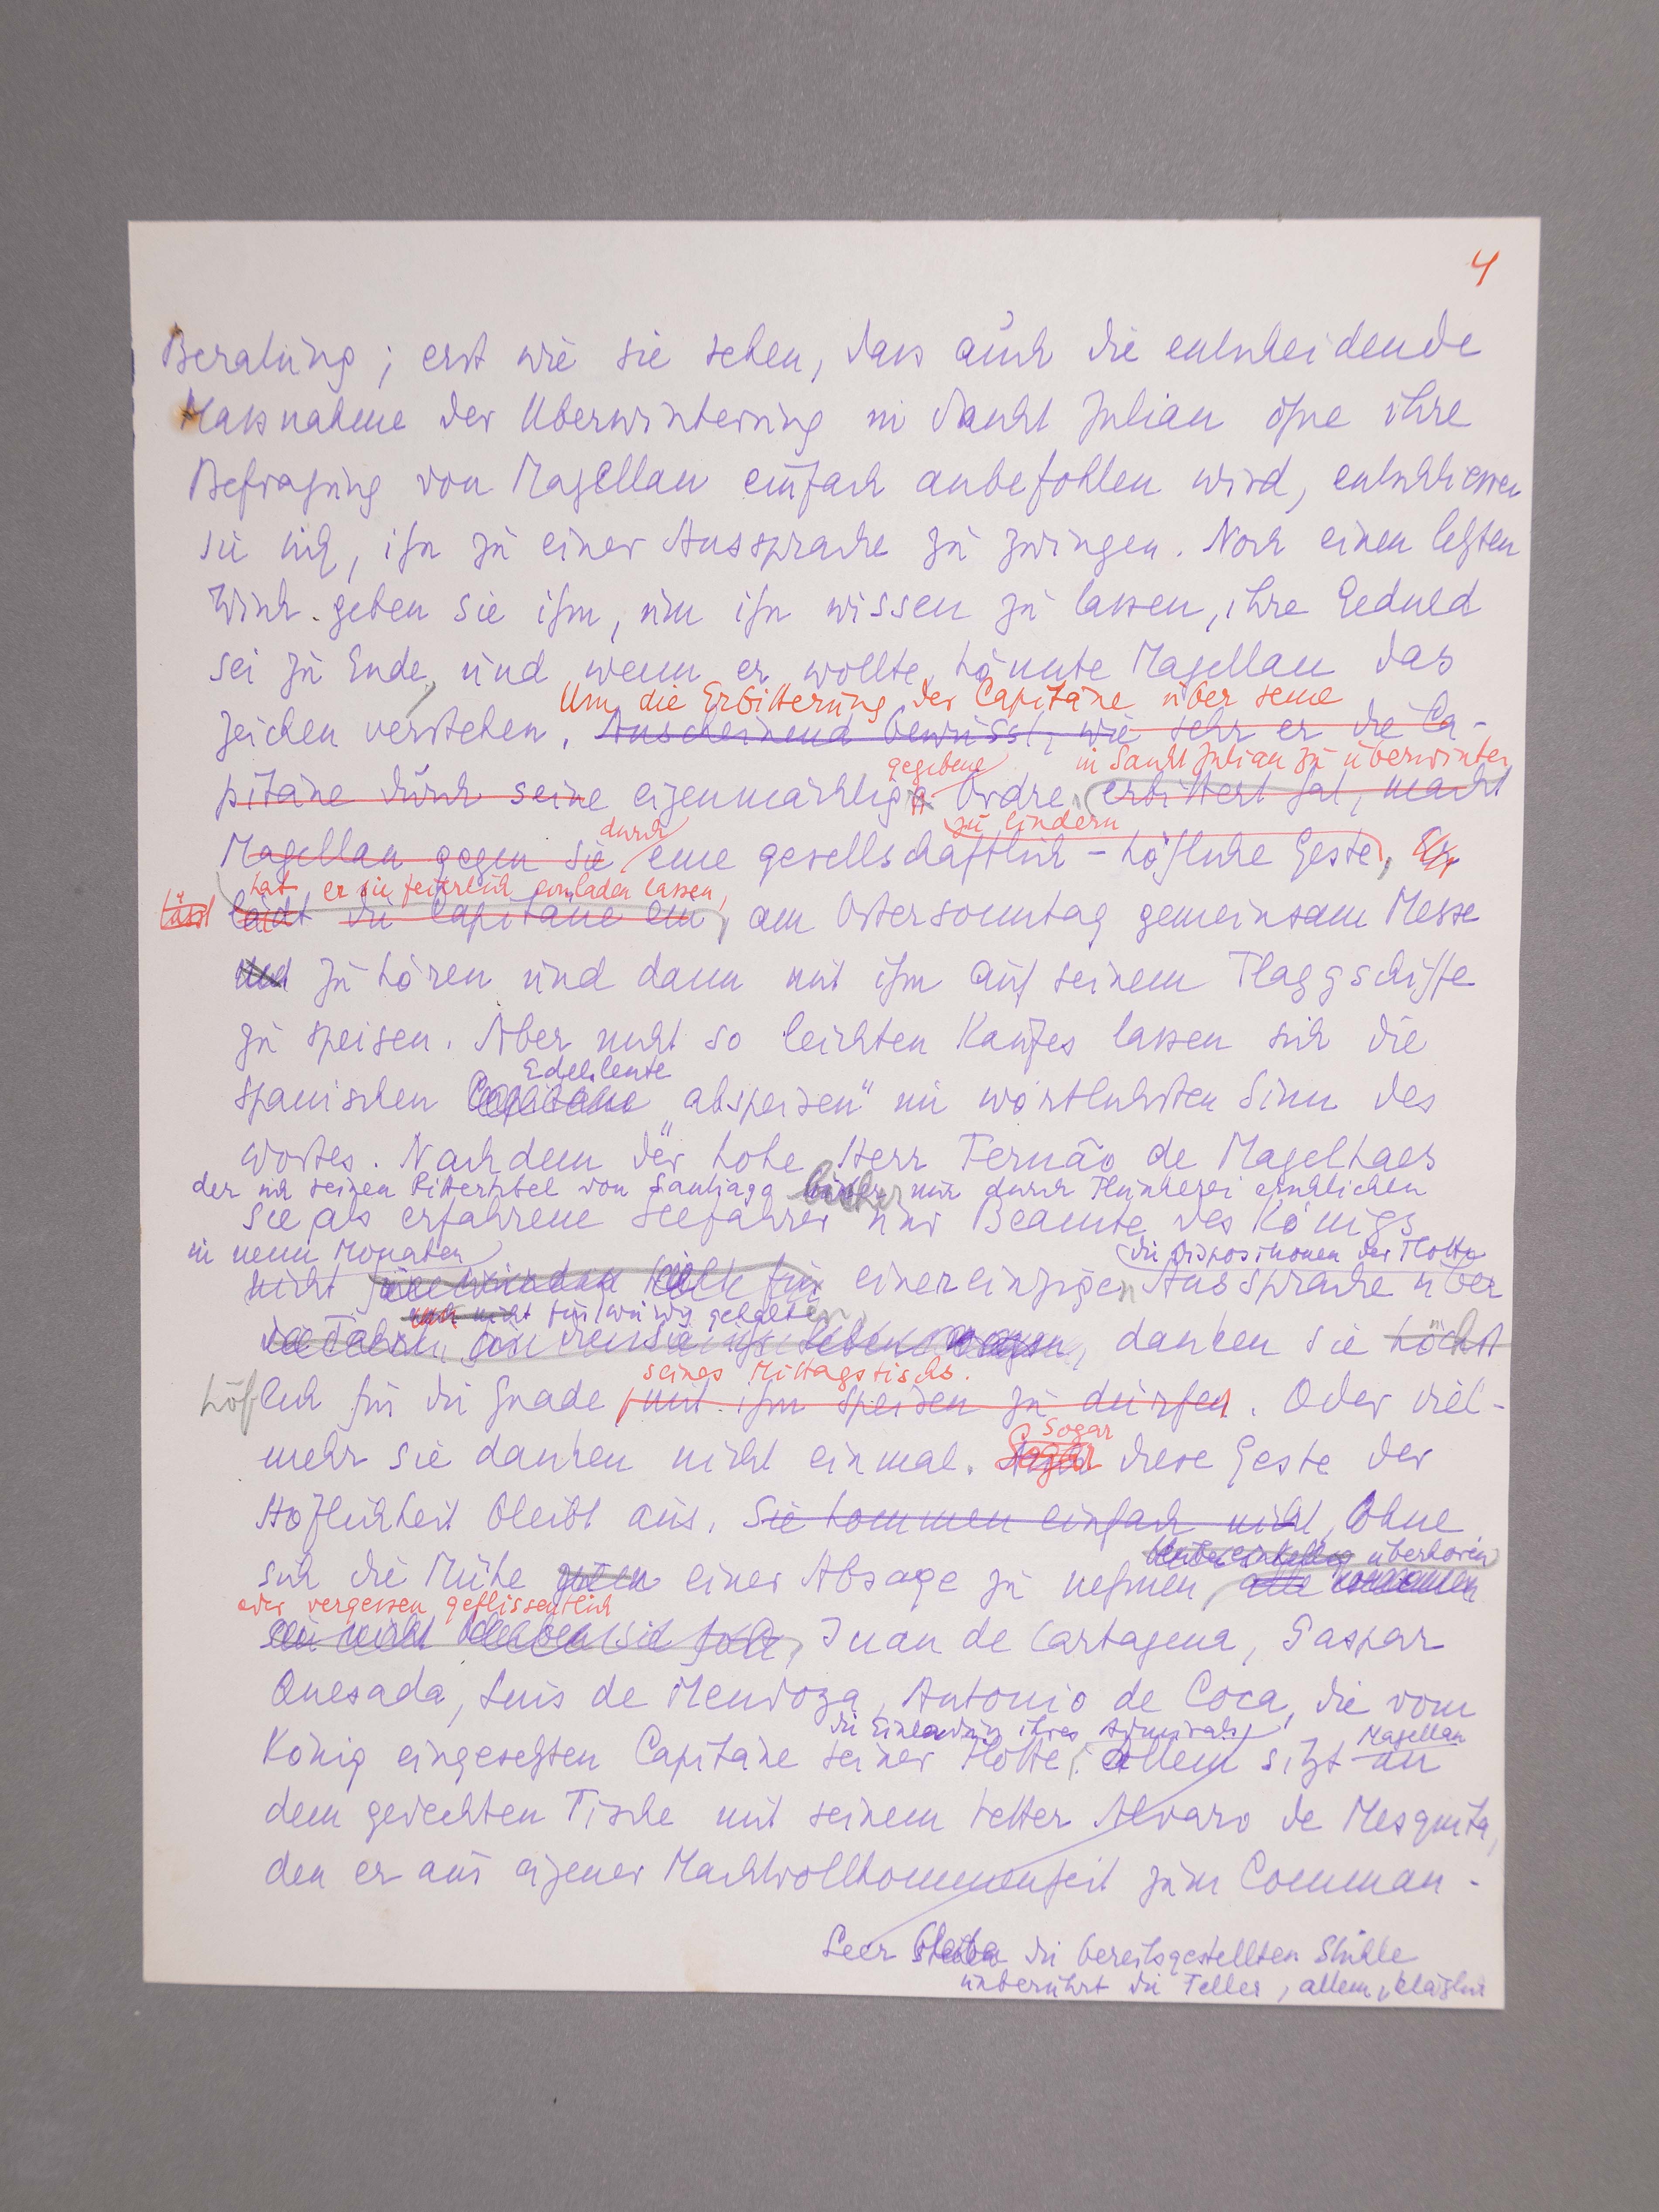 4
Beratung; erst wie sie sehen, dass auch die entscheidende
Massnahme der Uberwinterung in Sankt Julian ohne ihre
Befragung von Magellan einfach anbefohlen wird, entschliessen
sie sich, ihn zu einer Aussprache zu zwingen. Noch einen letzten
Wink geben sie ihm, um ihn wissen zu lassen, ihre Geduld
sei zu Ende, und wenn er wollte, könnte Magellan das
Um die Erbitterung der Capitäne über seine
Zeichen verstehen. Anscheinend bewusst, wie sehr er die Ca-
gegebene in Sankt Julian zu überwintern
pitäne durch seine eigenmächtige Ordre erbittert hat, macht
durch zu lindern
Magellan gegen sie eine gesellschaftlich-höfliche Geste, Er
hat er sie feierlich einladen lassen,
lässt lädt die Capitäne ein, am Ostersonntag gemeinsam Messe
und zu hören und dann mit ihm auf seinem Flaggschiffe
zu speisen. Aber nicht so leichten Kaufes lassen sich die
Edelleute
spanischen Capitäne „abspeisen" im wörtlichsten Sinn des
Wortes. Nachdem der hohe Herr Fernão de Magelhaes
der sich seinen Rittertitel von Santiago bisher nur durch Flunkerei erschlichen
sie als erfahrene Seefahrer und Beamte des Königs
in neun Monaten die Dispositionen der Flotte
nicht einer einzigen Aussprache über
nicht für würdig gehalten
danken sie höchst
seines Mittagstischs.
höflich für die Gnade, mit ihm speisen zu dürfen. Oder viel-
Sogar
mehr sie danken nicht einmal. diese Geste der
Höflichkeit bleibt aus. Sie kommen einfach nicht, Ohne
überhören
sich die Mühe einer Absage zu nehmen, alle
oder vergessen geflissentlich
Juan de Cartagena, Gaspar
Quesada, Luis de Mendoza, Antonio de Coca, die vom
die Einladung ihres Admirals Magellan
König eingesetzten Capitäne seiner Flotte; allein sitzt an
dem gedeckten Tische mit seinem Vetter Alvaro de Mesquita,
den er aus eigener Machtvollkommenheit zum Comman-
Leer bleiben die bereitgestellten Stühle
unberührt die Teller, allein, kläglich